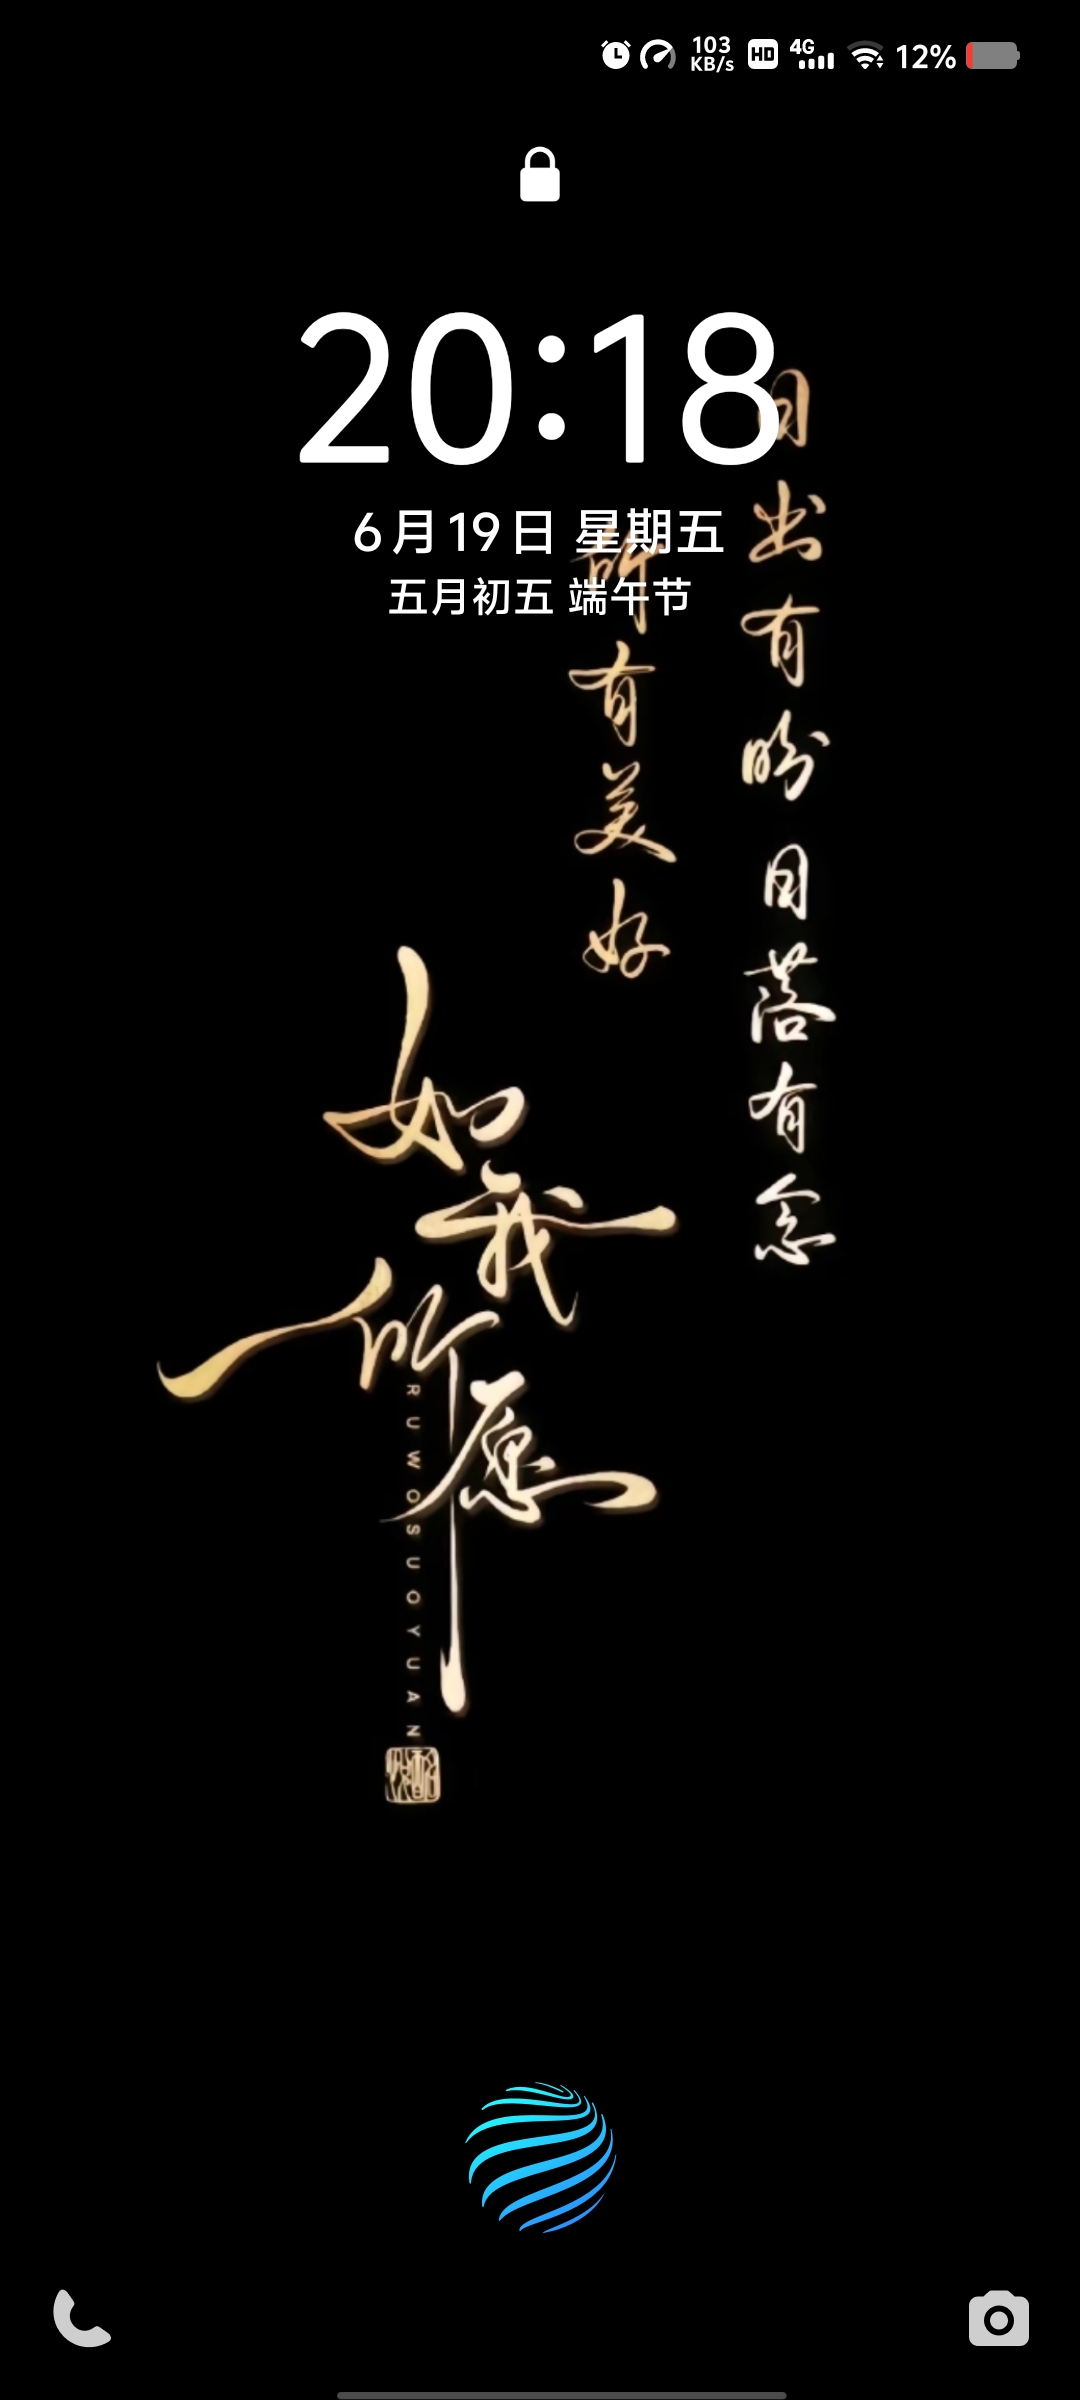 103 KB/s HD 4G 12%
20:18
6月19日 星期五
五月初五 端午节
日出有盼 日落有念
所有美好
如我所愿
RUWOSUOYUAN